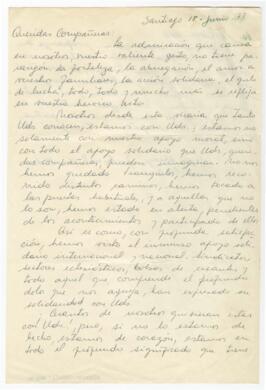 Santiago 18 - junio 77
Queridas Compañeras:
La admiración que causa
en nosotros vuestro valiente gesto, no tiene pa-
rangón, la fortaleza, la abnegación, el amor a
vuestros familiares, la acción solidaria, el grito
de lucha, todo, todo y mucho más se refleja
en vuestra heroica
Nosotros desde esta que tanto
Uds conocen, estamos con Uds; estamos no
solamente con nuestro apoyo moral, sino
con todo el apoyo solidario que Uds, queri-
das compañeras, pueden imaginar. No nos
hemos quedado tranquilos, hemos reco-
rrido distintos caminos, hemos tocado a
las puertas habituales, y a aquellas que no
lo son, hemos estado en alerta, pendientes
de los acontecimientos y participado de ellos
Así es como, con profunda satisfac-
ción, hemos visto el inmenso apoyo soli-
dario internacional y nacional. Sindicatos
sectores eclesiásticos, bolsas de cesantes, y
todo aquel que comprende el profundo
dolor que nos apoya, han expresado su
solidaridad con Uds.
Cuantos de nosotros quisieran estar
con Uds, pues, si no lo estamos de
hecho, estamos de corazón, estamos en
todo el profundo significado que tiene